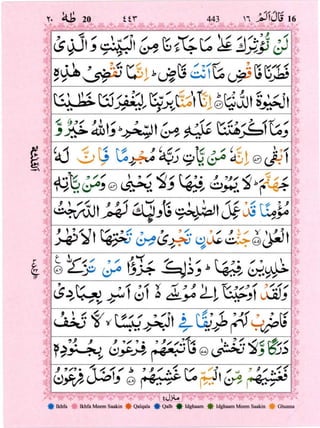 ٢٠ طٰهٰ 20 ٤٤٣ 443 قَالَ اَلَمْ ١٦ 16
لَنْ نُّؤْثِرَكَ عَلٰى مَا جَآءَنَا مِنَ الْبَيِّنٰتِ وَ الَّذِىْ
فَطَرَنَا فَاقْضِ مَاۤ اَنْتَ قَاضٍ ؕ اِنَّمَا تَقْضِىْ هٰذِهِ
الْحَيٰوةَ الدُّنْيَا ؕ اِنَّاۤ اٰمَنَّا بِرَبِّنَا لِيَغْفِرَ لَنَا خَطٰيٰنَا
وَمَاۤ اَكْرَهْتَنَا عَلَيْهِ مِنَ السِّحْرِ ؕ وَاللّٰهُ خَيْرٌ وَّ
اَبْقٰى ۝ اِنَّهٗ مَنْ يَّاْتِ رَبَّهٗ مُجْرِمًا فَاِنَّ لَهٗ
جَهَنَّمَ ؕ لَا يَمُوْتُ فِيْهَا وَلَا يَحْيٰى ۝ وَمَنْ يَّاْتِهٖ
مُؤْمِنًا قَدْ عَمِلَ الصّٰلِحٰتِ فَاُولٰٓئِكَ لَهُمُ الدَّرَجٰتُ
الْعُلٰى ۝ جَنّٰتُ عَدْنٍ تَجْرِىْ مِنْ تَحْتِهَا الْاَنْهٰرُ
خٰلِدِيْنَ فِيْهَا ؕ وَذٰلِكَ جَزٰٓؤُا مَنْ تَزَكّٰى ۝
وَلَقَدْ اَوْحَيْنَاۤ اِلٰى مُوْسٰٓى ۙ اَنْ اَسْرِ بِعِبَادِىْ
فَاضْرِبْ لَهُمْ طَرِيْقًا فِى الْبَحْرِ يَبَسًا ۙ لَّا تَخٰفُ
دَرَكًا وَّلَا تَخْشٰى ۝ فَاَتْبَعَهُمْ فِرْعَوْنُ بِجُنُوْدِهٖ
فَغَشِيَهُمْ مِّنَ الْيَمِّ مَا غَشِيَهُمْ ؕ وَاَضَلَّ فِرْعَوْنُ
منزل ٤
Ikhfa Ikhfa Meem Saakin Qalqala Qalb Idghaam Idghaam Meem Saakin Ghunna